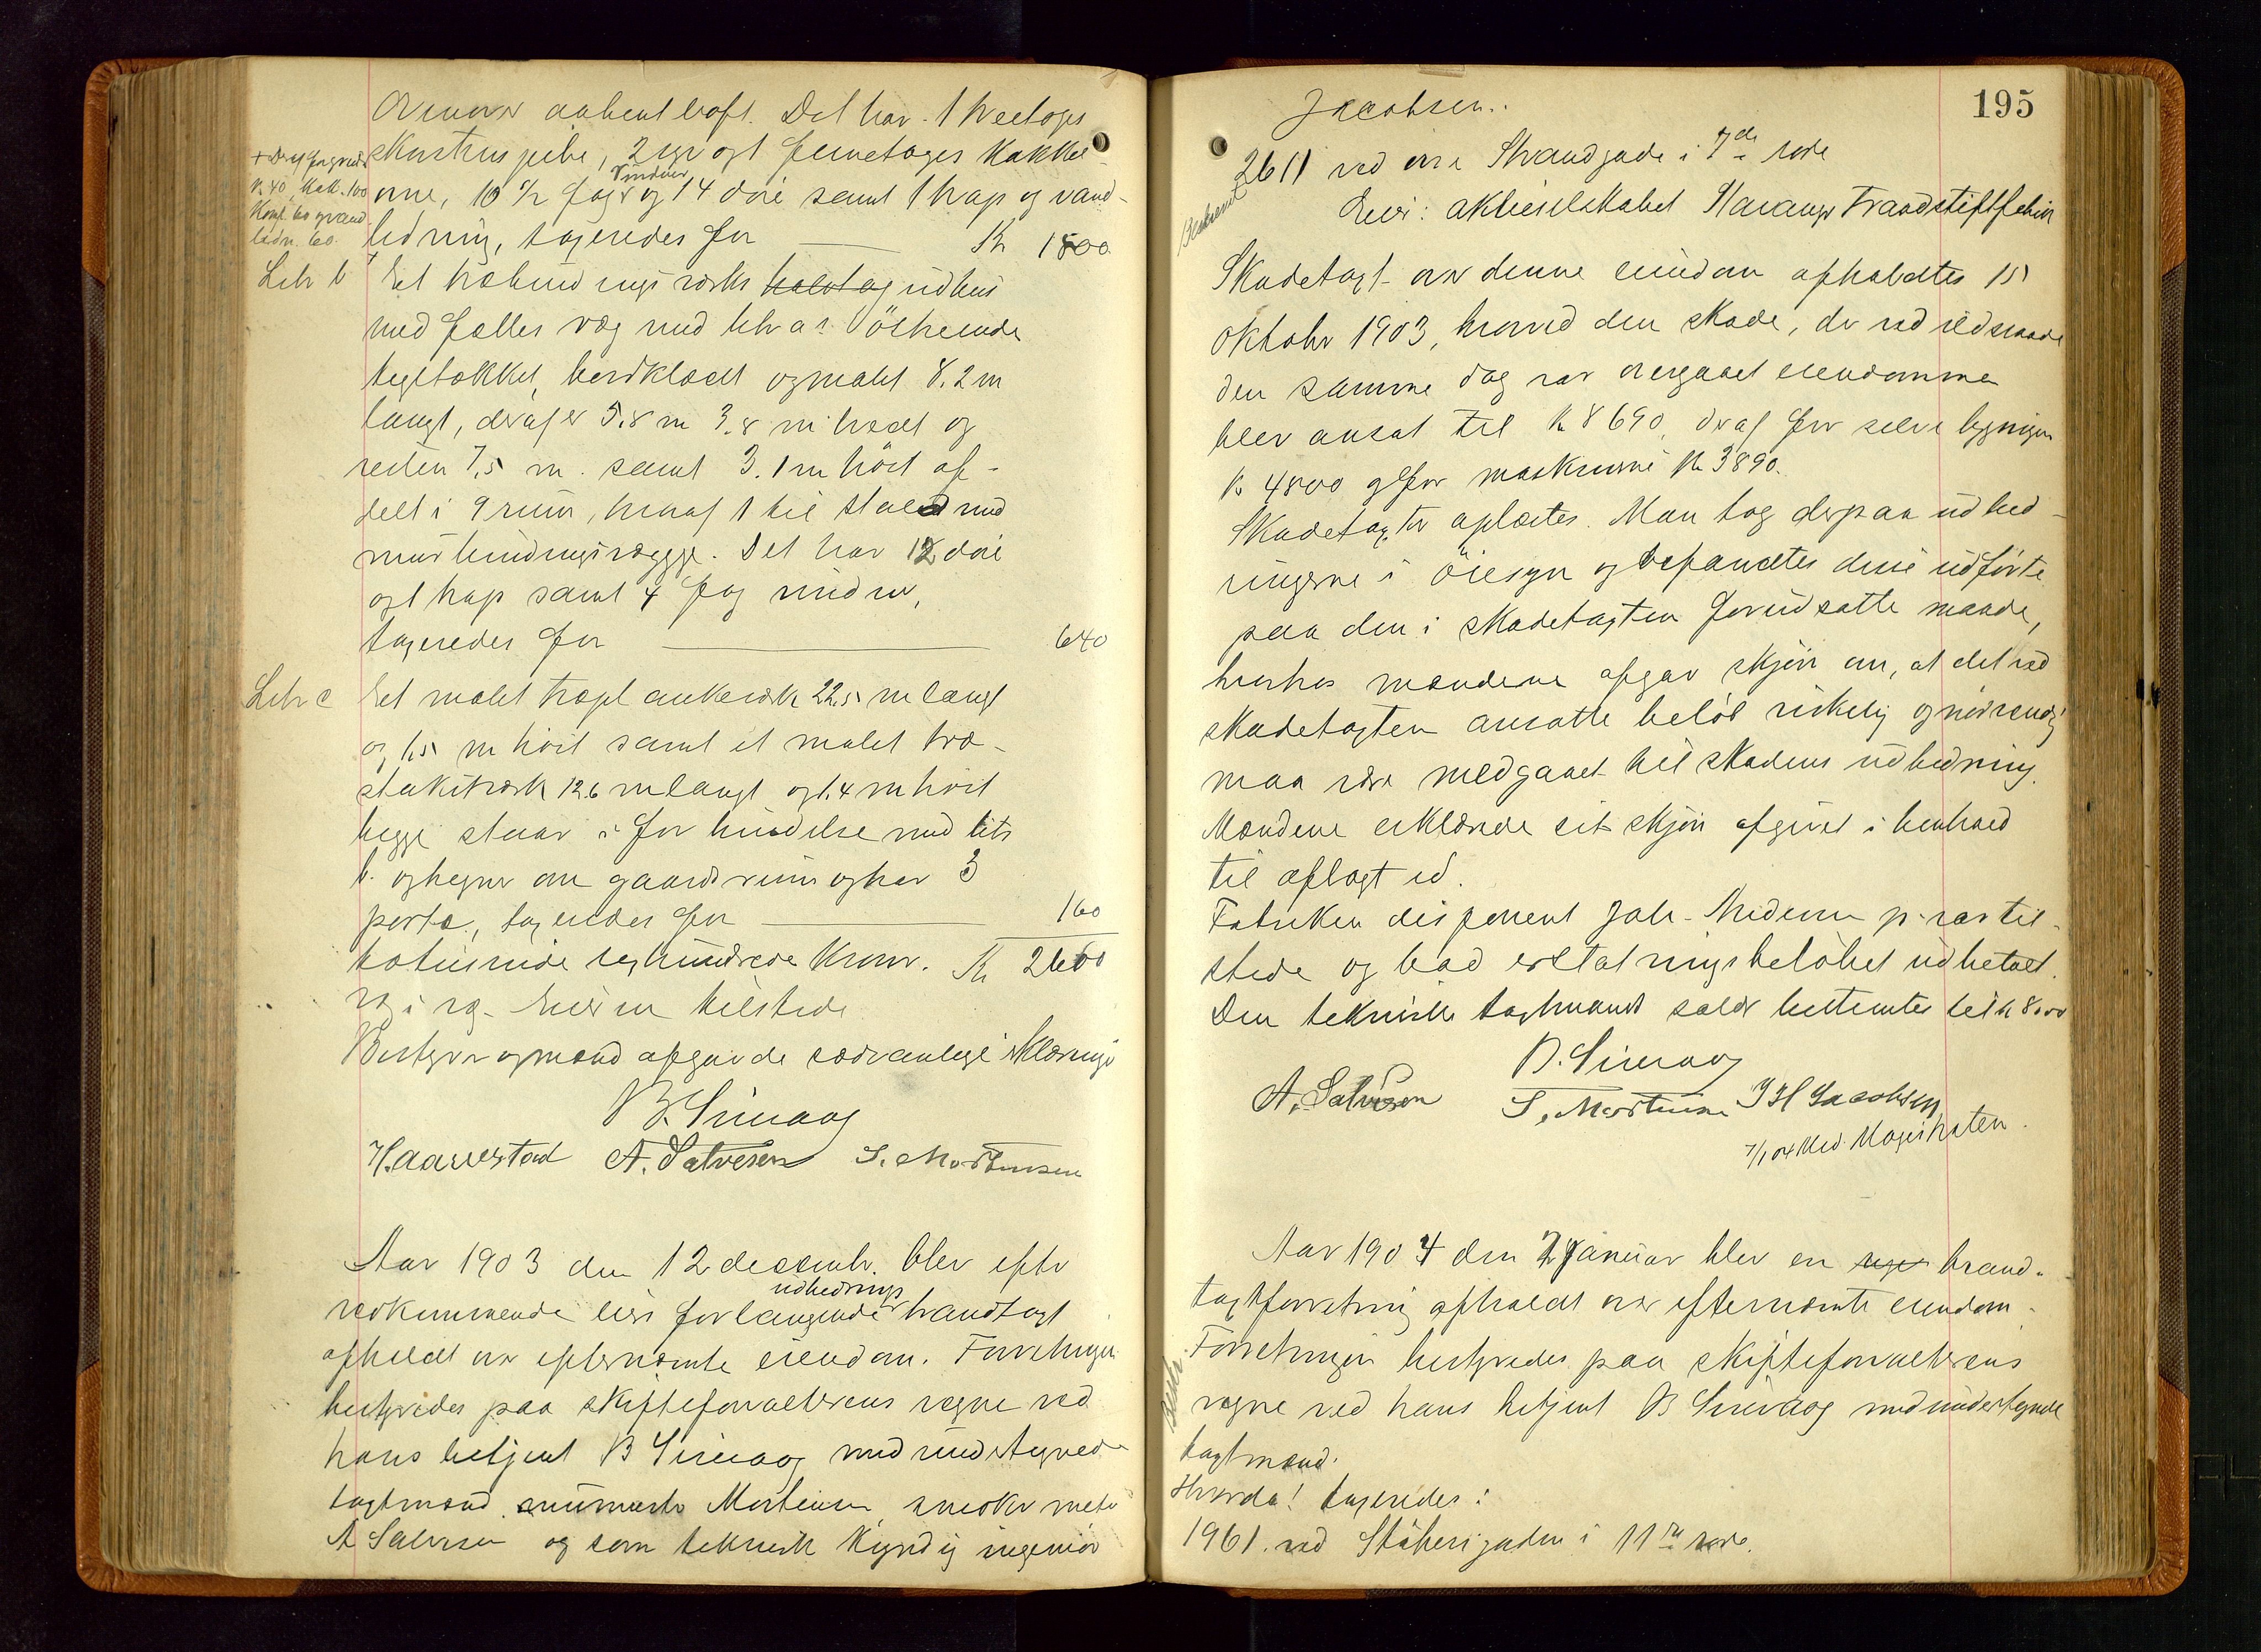 Ovenover aabent loft. Det har 1 treetages
skorstenspibe, 2 og 1 femetages kakkel-
+
K. 40, Kak. 100
Komf. 60 og vand
ledn. 60.
vinduer
ovne, 10 1/2 fag og 14 döre samt 1 trap og vand-
ledning, taxeredes for Kr 1800
Litr b Et træbindingsværks halvtag udhus
med fælles væg med litr a's östre ende
tegltækket, bordklædt og malet 8.2 m
langt, deraf er 5.8 m 3.8 m bredt og
resten 7.5 m. samt 3.1 m höit af-
delt i 9 rum, hvoraf 1 til stald med
murbindingsvægge. Det har 12 döre
og 1 trap samt 4 fag vinduer,
taxeredes for 640
Litr c Et malet træplankeværk 22.5 m langt
og 1.5 m höit samt et malet træ-
stakitværk 12.6 m langt og 1.4 m höit
begge staar i forbindelse med litr
b. og hegner om gaardsrum og har 3
porte, taxeredes for 160
totusinde sexhundrede Kroner. Kr 2600
Eieren tilstede
Bestyrer og mænd afgav de sædvanlige erklæringer
B. Sirevaag
H. Aarrestad A. Salvesen S. Mortensen
Aar 1903 den 12 december blev efter
udbedrings
vedkommende eiers forlangende brandtaxt
afholdt over efternævnte eiendom. Forretningen
bestyredes paa skifteforvalterens vegne ved
hans betjent B Sirevaag med undertegnede
taxtmænd murmester Mortensen, snedker mester
A Salvesen og som teknisk kyndig ingeniör
195
Jacobsen.
2611 ved övre Strandgade i 7de rode
Eier: aktieselskabet Stavanger Traadstiftfabrik
Skadetaxt over denne eiendom afholdtes 15
oktober 1903, hvorved den skade, der ved ildsvaade
den samme dag var overgaaet eiendommen
blev ansat til Kr 8690, deraf for selve bygningen
Kr 4800 og for maskinerne Kr 3890.
Skadetaxten oplæstes. Man tog derpaa udbed-
ringerne i öiesyn og befandtes disse udförte
paa den i skadetaxten forudsatte maade,
hvorhos mændene afgav skjön om, at det ved
skadetaxten ansatte belöb virkelig og nödvendig
maa være medgaaet til skadens udbedring.
Mændene erklærede sit skjön afgivet i henhold
til aflagt ed.
Fabriken disponent Joh. Middelthon jr. var til-
stede og bad erstatningsbelöbet udbetalt.
Den tekniske taxtmands salær bestemtes til Kr 8.00
B. Sirevaag
A. Salvesen S. Mortensen J H Jacobsen
7/1 04 Med. Magistraten.
Aar 1904 den 2 januar blev en brand-
taxtforretning afholdt over efternævnte eiendom.
Forretningen bestyredes paa skifteforvalterens
vegne ved hans betjent B Sirevaag med undertegnede
taxtmænd.
Hvorda! taxeredes:
1961 ved Stöberigaden i 11te rode.